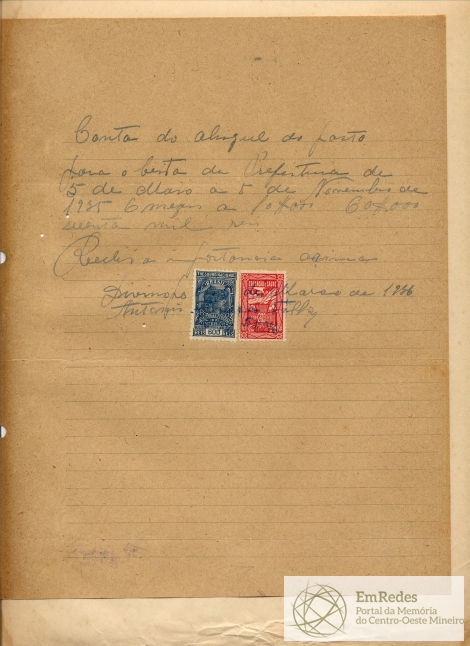 Conta do aluguel do pasto
para o besta da Prefeitura de
5 de Maio a 5 de Novembro de
1935 6 mezes a 10$000 60$000
secenta mil reis
Recebi a importancia acima
Março de 1936
Antonio
EmRedes
Portal da Memória
do Centro-Oeste Mineiro